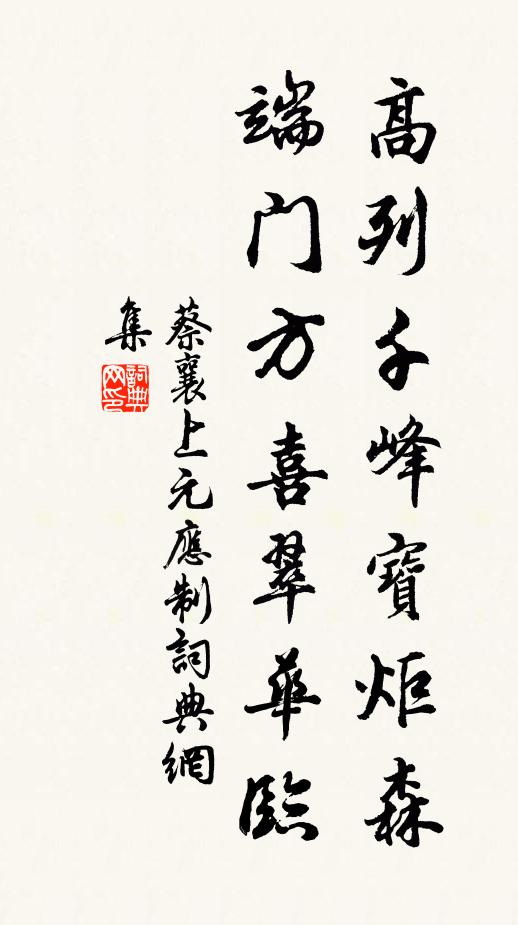 高列千峰寶炬森
端门方喜翠華臨
蔡襄上元應制詞典網
集
詞典
网印